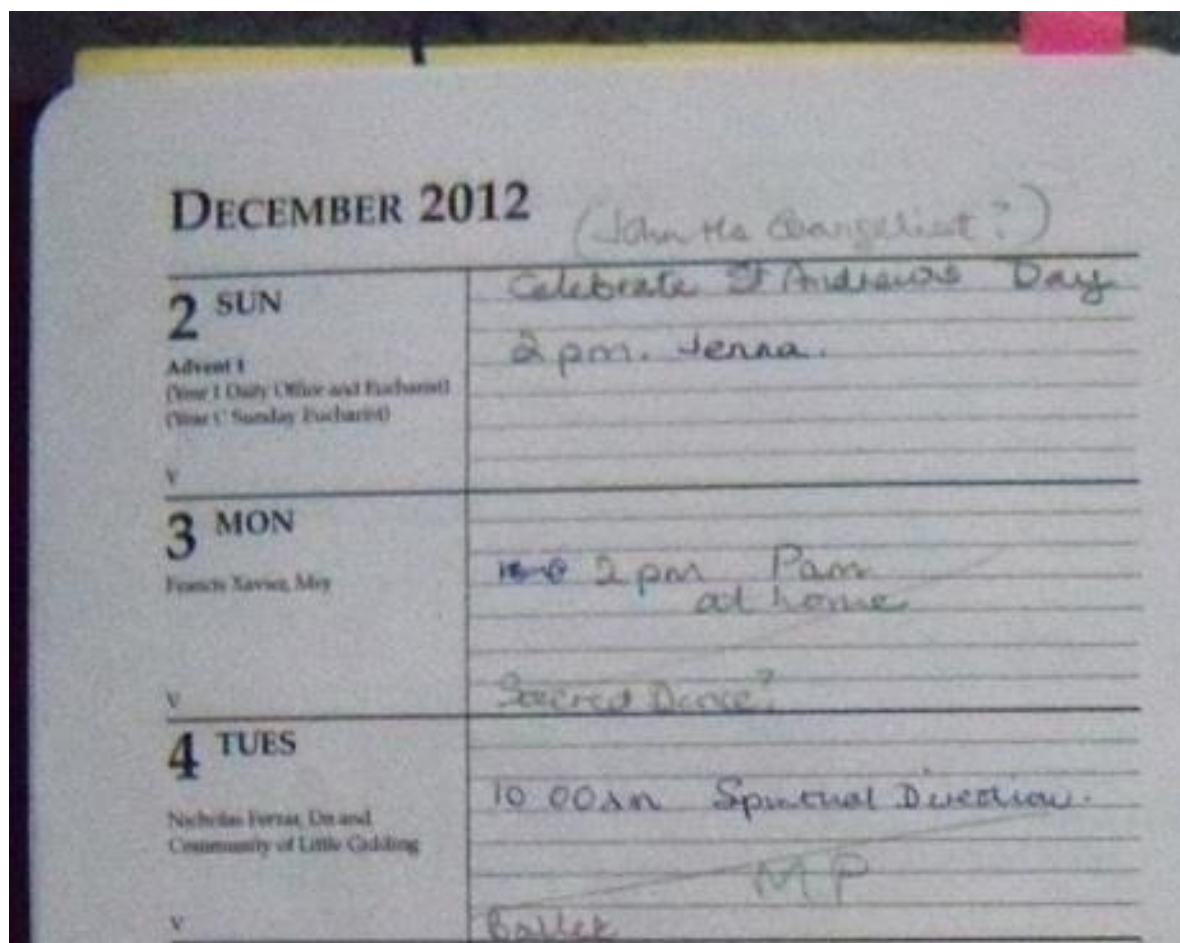 DECEMBER 2012
(John the Evangelist?)
2 SUN
Advent 1
(Year 1 Daily Office and Eucharist)
(Year C Sunday Eucharist)
V
Celebrate St Andrews Day
2 pm. Jenna.
3 MON
Francis Xavier, Msy
V
2 pm Pam
at home
Sacred Dance?
4 TUES
Nicholas Ferrar, Dn and
Community of Little Gidding
V
10 00am Spiritual Direction.
MP
Ballet